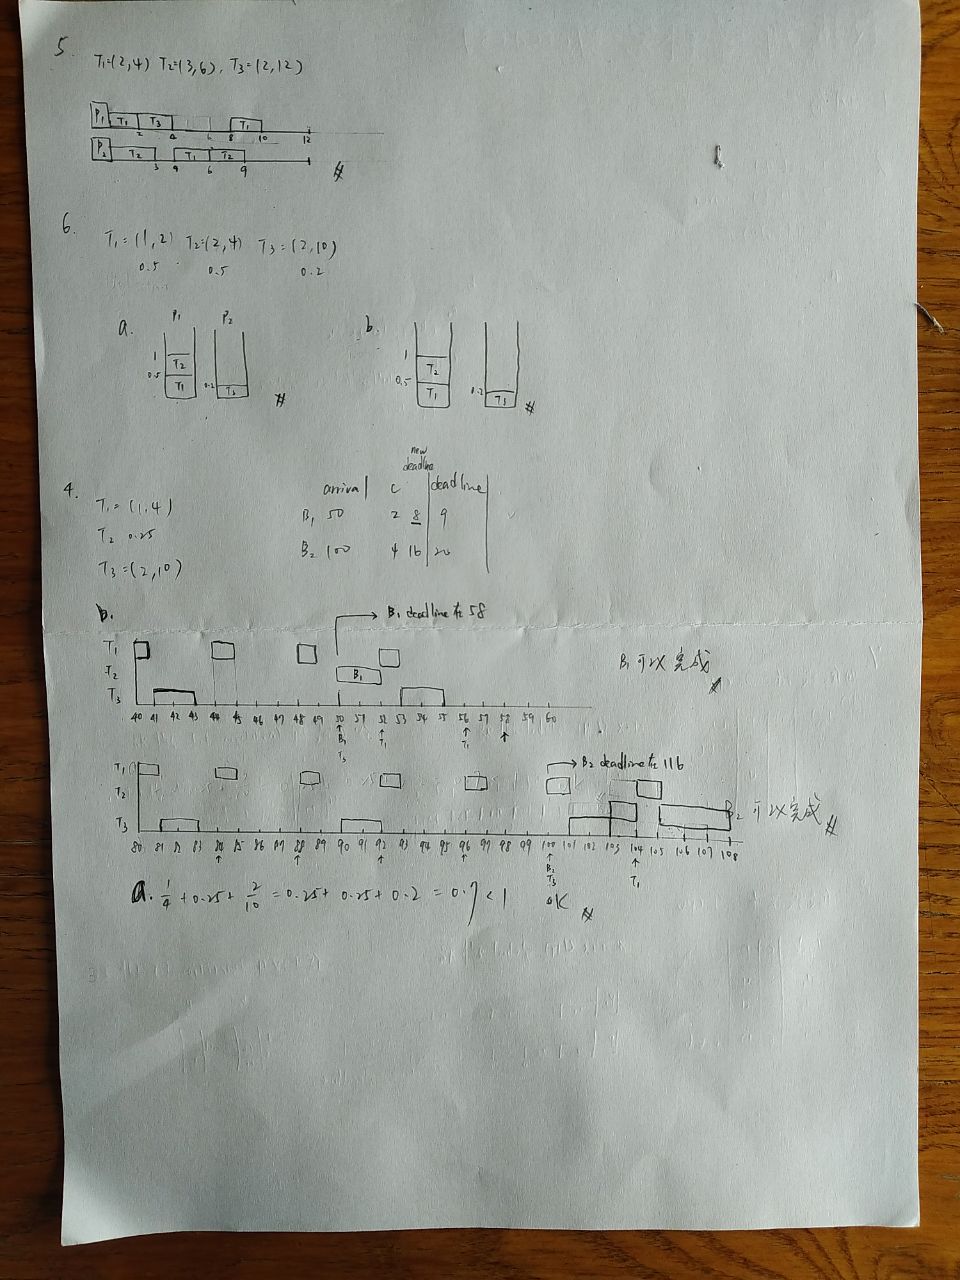 5.
T₁=(2,4) T₂=(3,6), T₃=(2,12)
P₁ T₁ T₃ T₁
2 4 6 8 10 12
P₂ T₂ T₁ T₂
3 4 6 9
6.
T₁=(1,2) T₂=(2,4) T₃=(2,10)
0.5 0.5 0.2
a. P₁ P₂ b.
1 T₂ 1 T₂
0.5 T₁ 0.2 T₃ 0.5 T₁ 0.2 T₃
new
4. arrival C deadline deadline
T₁=(1,4) B₁ 50 2 8 9
T₂ 0.25
B₂ 100 4 16 20
T₃=(2,10)
b. B₁ deadline在58
T₁
T₂ B₁ B₁可以完成
T₃
40 41 42 43 44 45 46 47 48 49 50 51 52 53 54 55 56 57 58 59 60
B₁ T₁ T₁
T₃
T₁ B₂ deadline在116
T₂ B₂可以完成
T₃
80 81 82 83 84 85 86 87 88 89 90 91 92 93 94 95 96 97 98 99 100 101 102 103 104 105 106 107 108
B₂ T₁
T₃
a. 1/4 + 0.25 + 2/10 = 0.25 + 0.25 + 0.2 = 0.7 < 1 OK